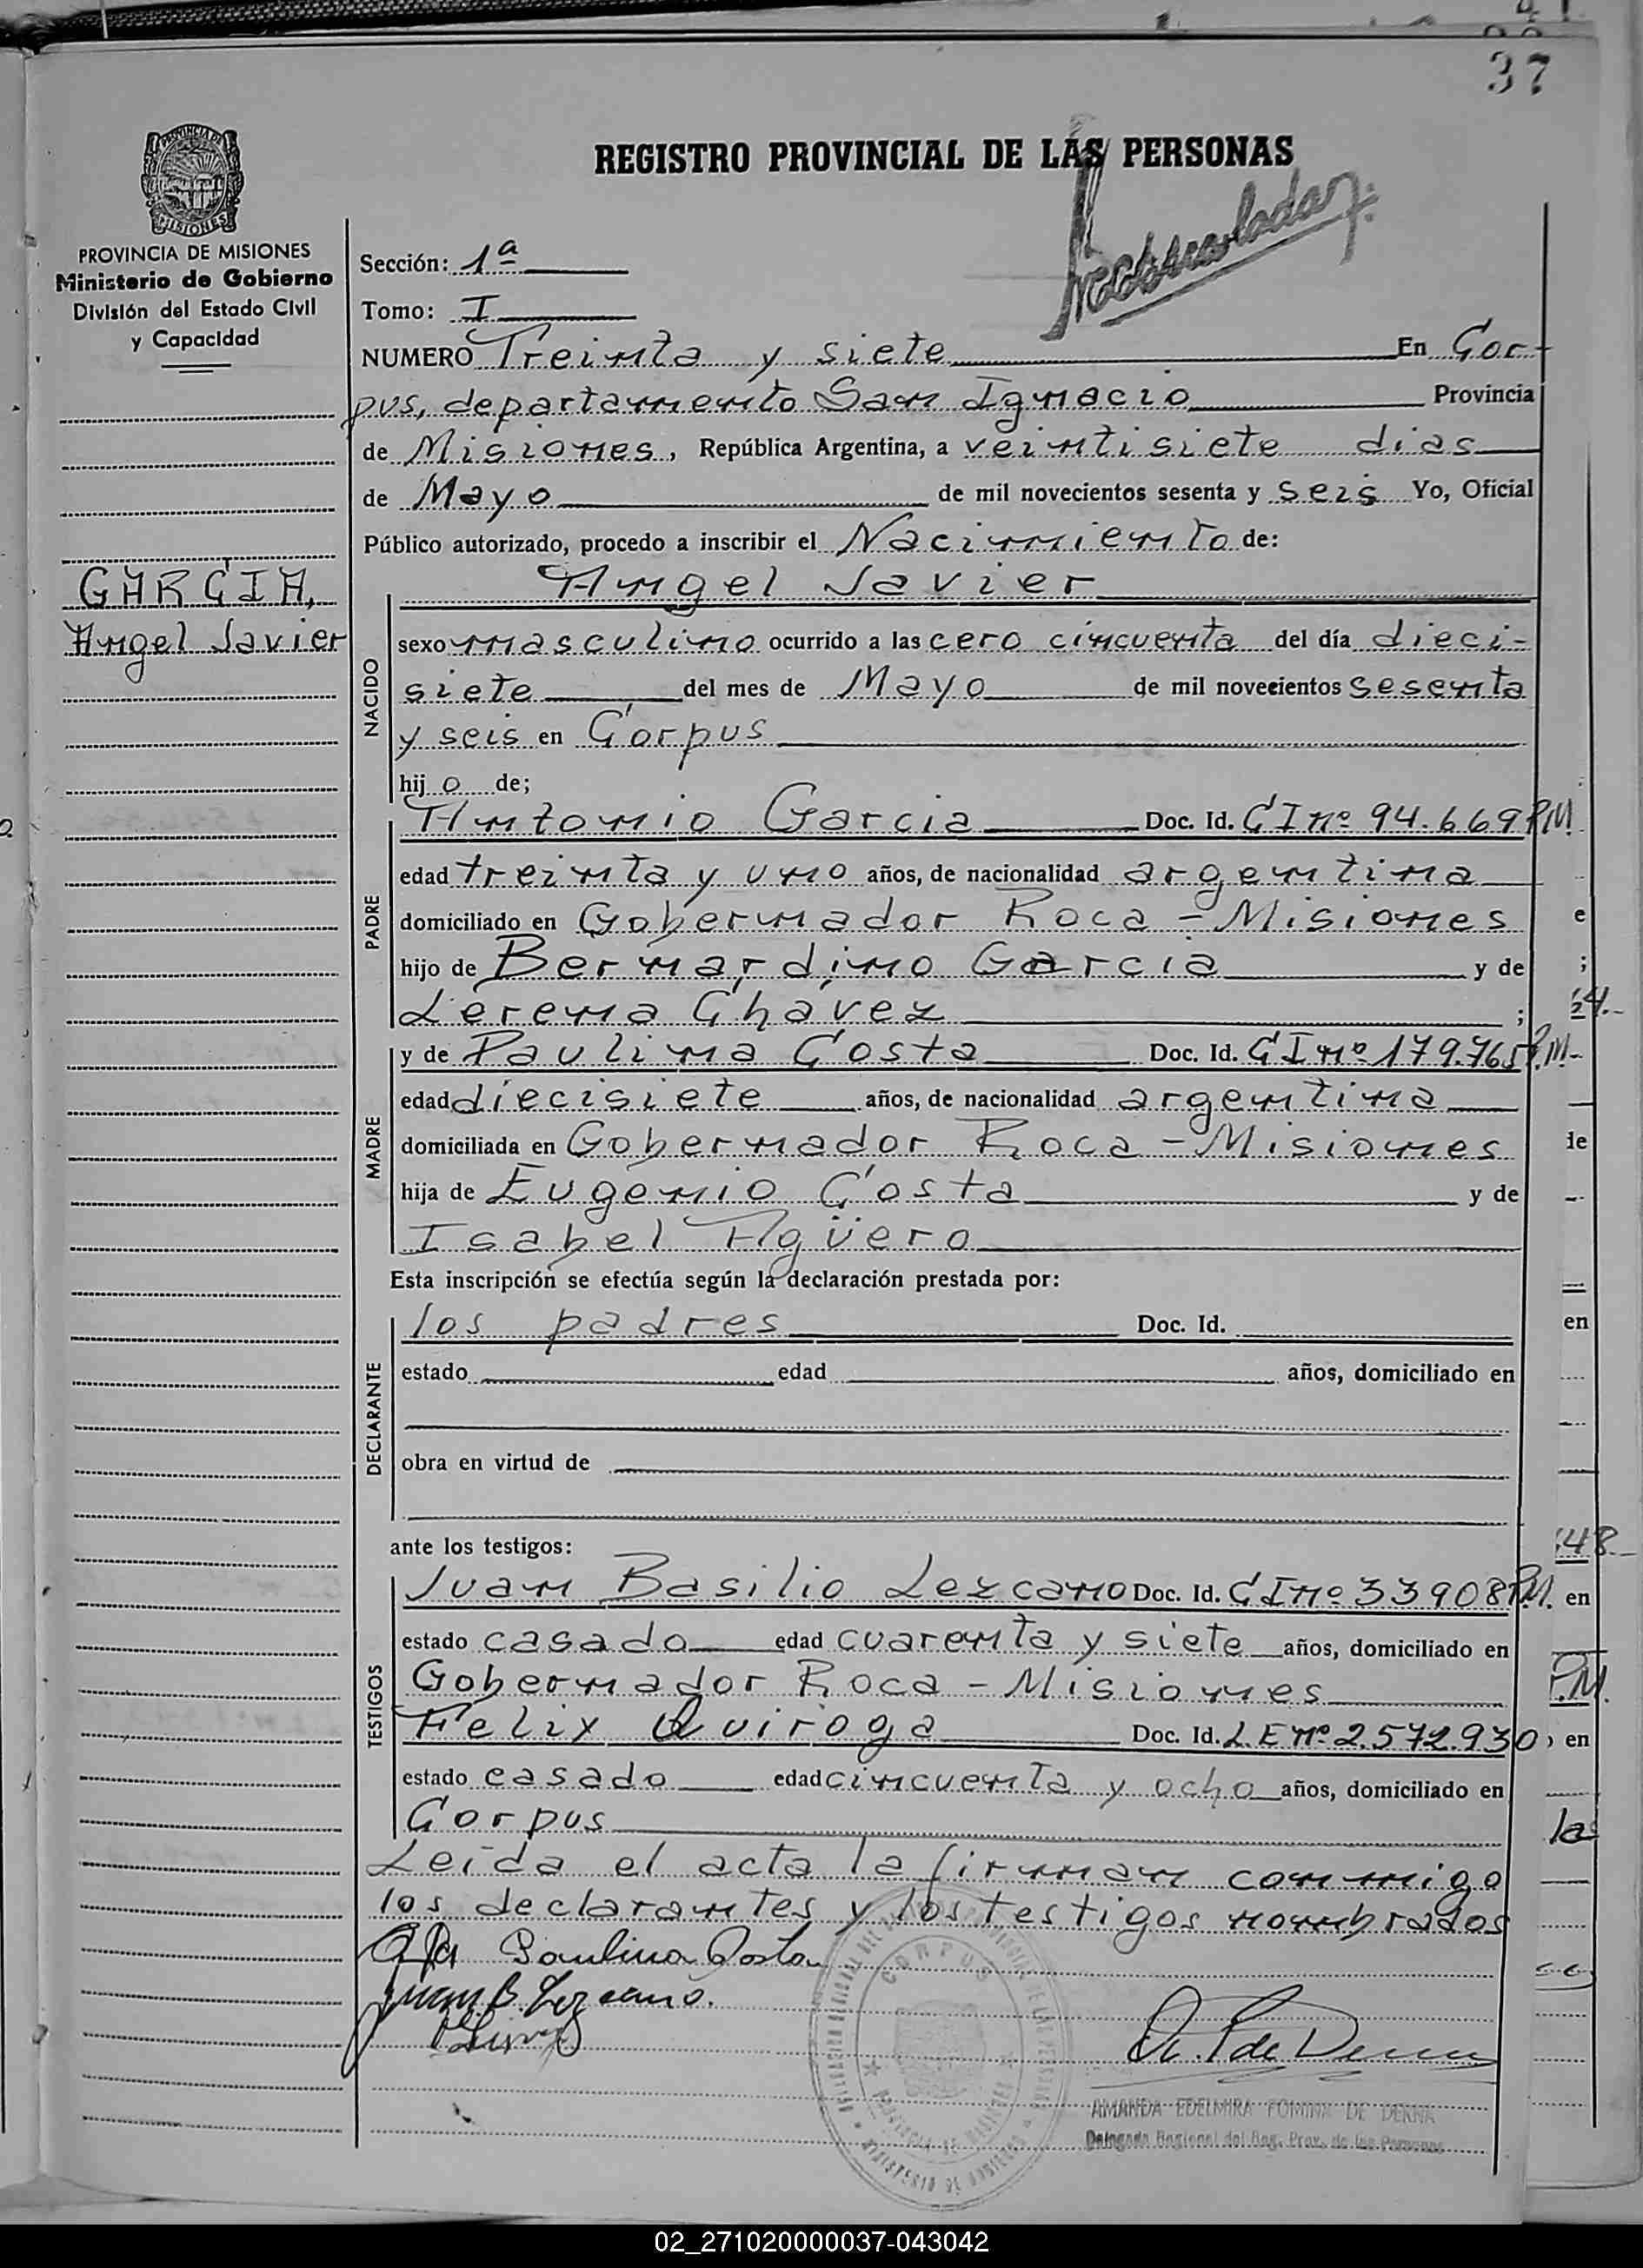 37
REGISTRO PROVINCIAL DE LAS PERSONAS
PROVINCIA DE MISIONES
Ministerio de Gobierno
División del Estado Civil
y Capacidad
Sección: 1ª
Tomo: I
NUMERO Treinta y siete En Cor-
pus, departamento San Ignacio Provincia
de Misiones, República Argentina, a veintisiete dias
de Mayo de mil novecientos sesenta y seis Yo, Oficial
Público autorizado, procedo a inscribir el Nacimiento de:
GARCIA,
Angel Javier
Angel Javier
NACIDO
sexo masculino ocurrido a las cero cincuenta del día dieci-
siete del mes de Mayo de mil novecientos sesenta
y seis en Corpus
hijo de;
PADRE
Antonio Garcia Doc. Id. CI nº 94.669 P.M.
edad treinta y uno años, de nacionalidad argentina
domiciliado en Gobernador Roca - Misiones
hijo de Bernardino Garcia y de
Lerena Chávez ;
MADRE
y de Paulina Costa Doc. Id. CI nº 179.765 P.M.-
edad diecisiete años, de nacionalidad argentina
domiciliada en Gobernador Roca - Misiones
hija de Eugenio Costa y de
Isabel Agüero
Esta inscripción se efectúa según la declaración prestada por:
DECLARANTE
los padres Doc. Id.
estado edad años, domiciliado en
obra en virtud de
ante los testigos:
TESTIGOS
Juan Basilio Lezcano Doc. Id. CI nº 33908 P.M.
estado casado edad cuarenta y siete años, domiciliado en
Gobernador Roca - Misiones
Felix Quiroga Doc. Id. LE nº 2.572.930
estado casado edad cincuenta y ocho años, domiciliado en
Corpus
Leída el acta la firman conmigo
los declarantes y los testigos nombrados
Paulina Costa
Juan B. Lezcano.
CORPUS
AMANDA EDELMIRA FOMINA DE DERNA
Delegada Regional del Reg. Prov. de las Personas
02_271020000037-043042